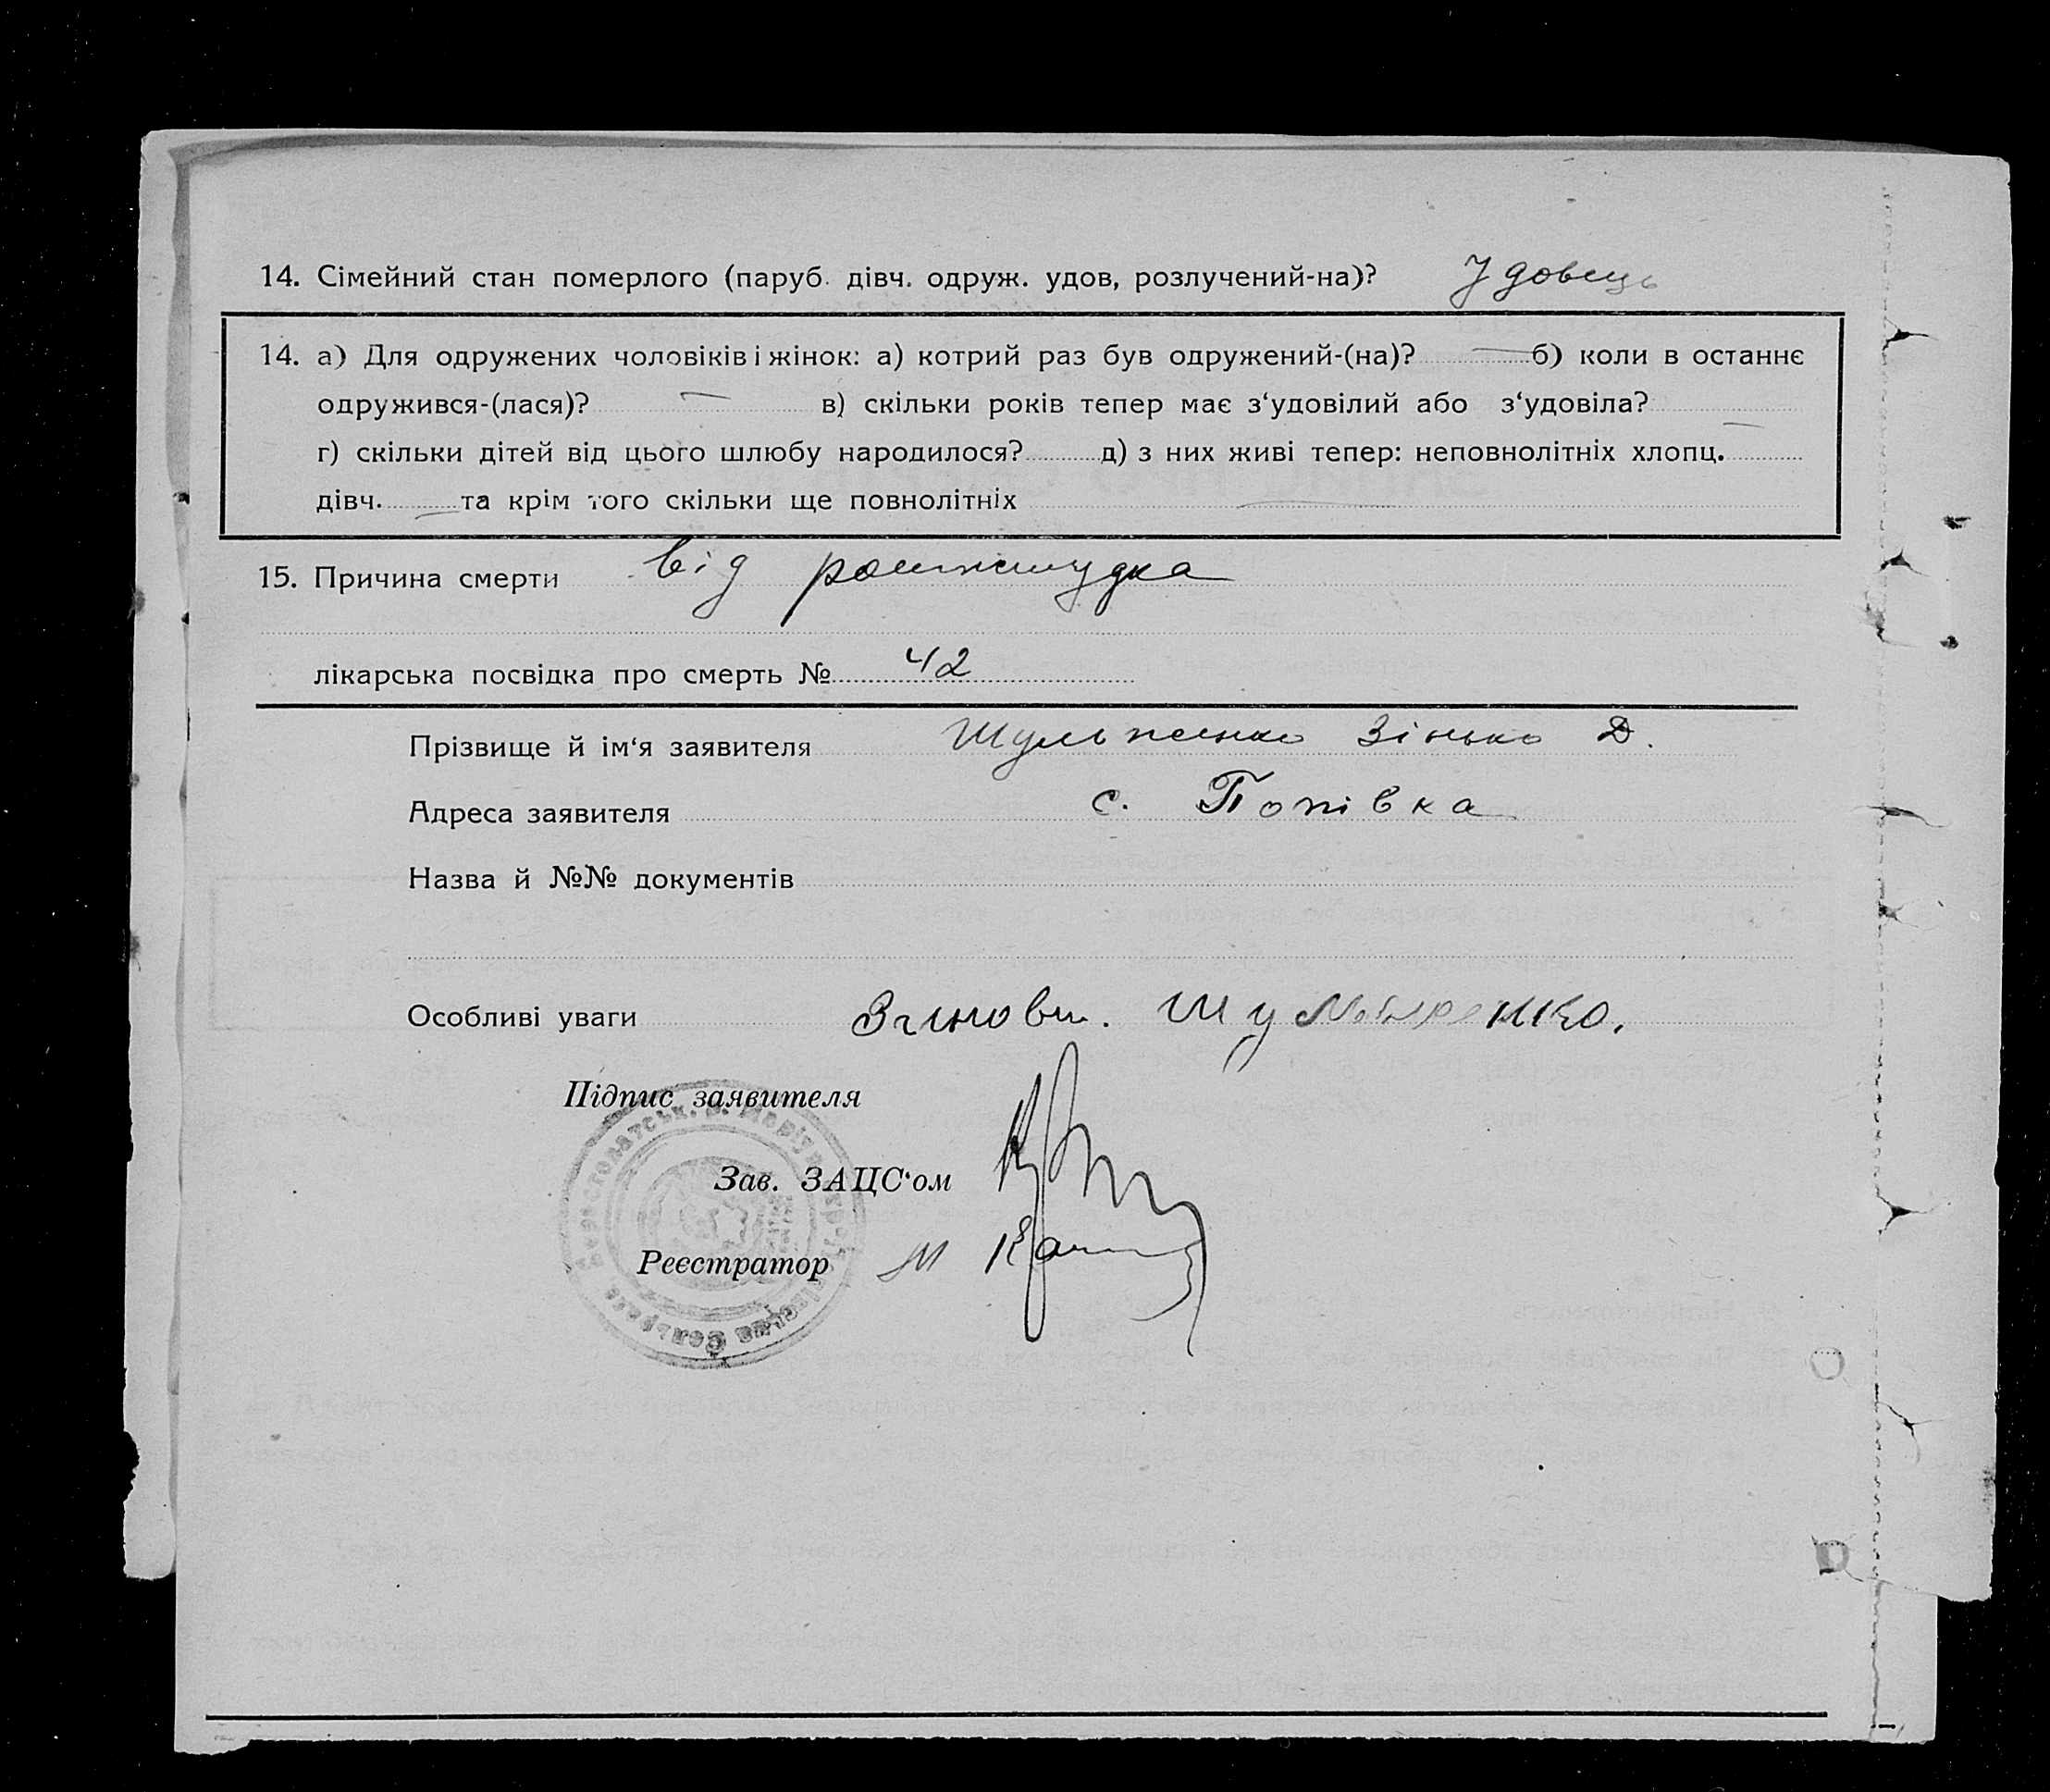 14. Сімейний стан померлого (паруб. дівч. одруж. удов, розлучений-на)? Удовець
14. а) Для одружених чоловіків і жінок: а) котрий раз був одружений-(на)? — б) коли в останнє
одружився-(лася)? — в) скільки років тепер має з‘удовілий або з‘удовіла? —
г) скільки дітей від цього шлюбу народилося? д) з них живі тепер: неповнолітніх хлопц.
дівч. — та крім того скільки ще повнолітніх —
15. Причина смерти від
лікарська посвідка про смерть № 42
Прізвище й ім‘я заявителя Зінько Д.
Адреса заявителя с. Попівка
Назва й №№ документів
Особливі уваги
Підпис заявителя
Зав. ЗАЦС‘ом
Реєстратор М